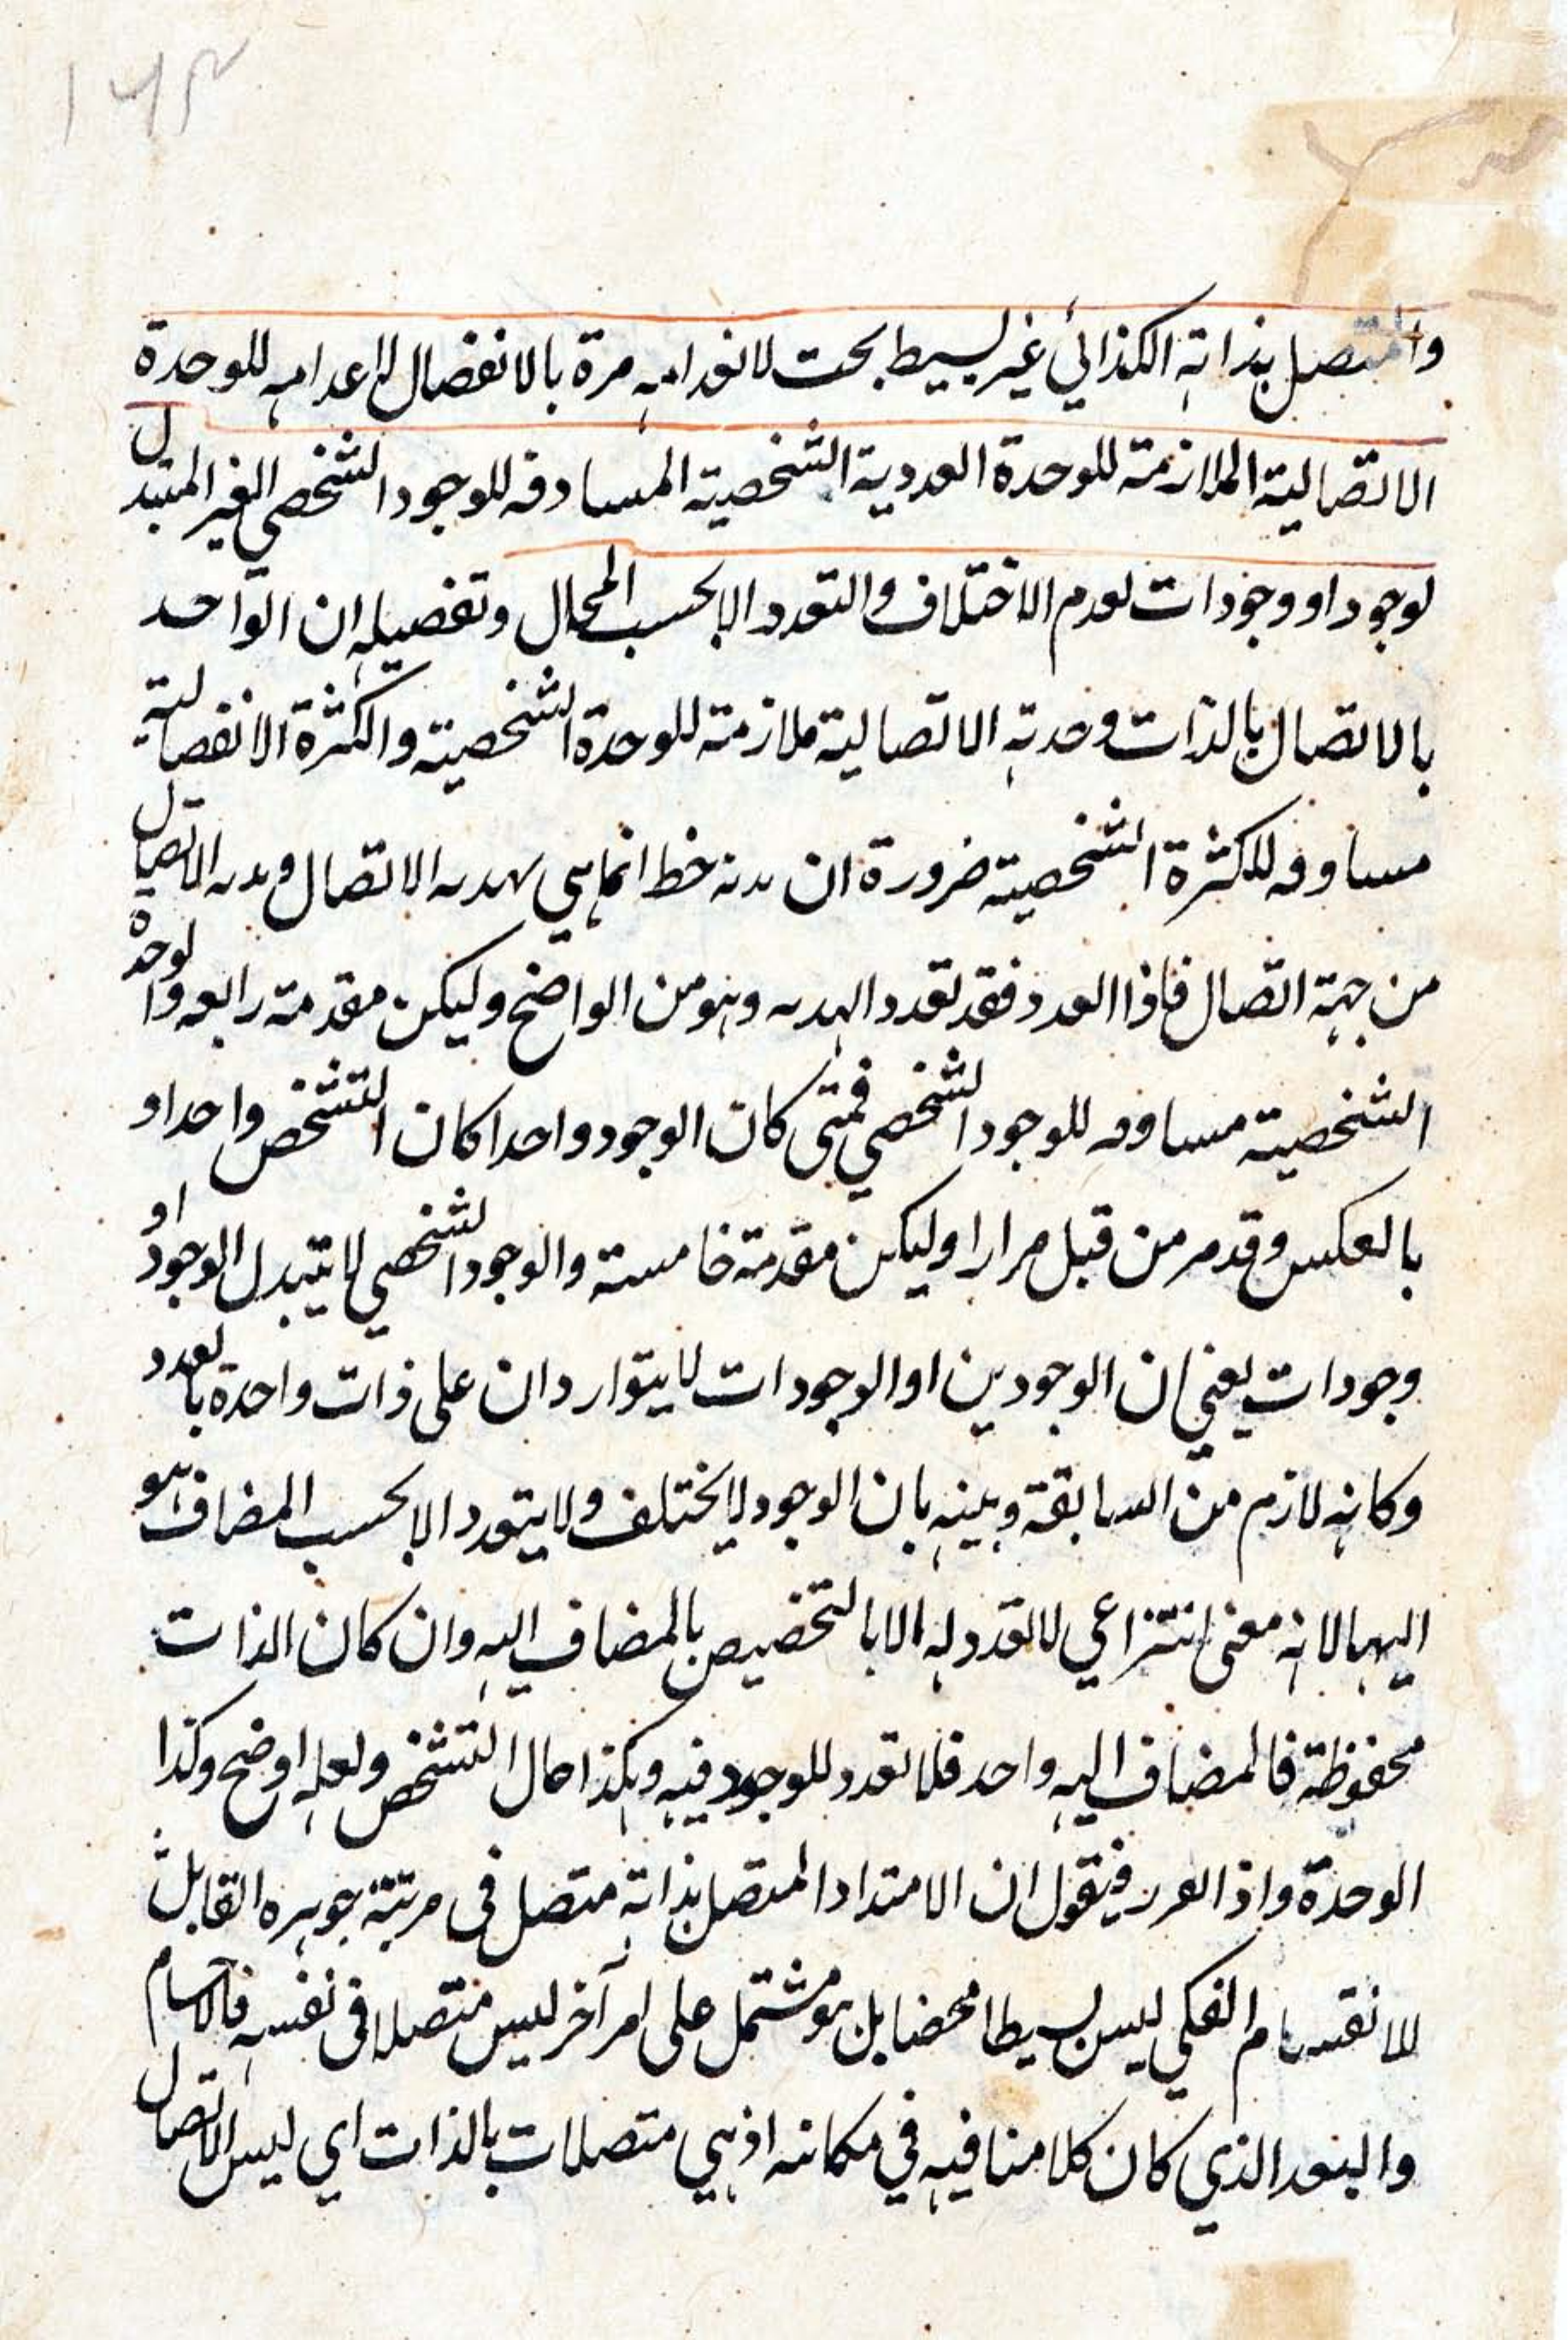 والمتصل بذاته الكذائي غير بسيط بحت لانعدامه مرة بالانفصال لاعدامه للوحدة
الاتصالية الملازمة للوحدة العددية الشخصية المساوقه للوجود الشخصي الغير المتبدل
لوجود او وجودات لعدم الاختلاف والتعدد الا بحسب المحال وتفصيله ان الواحد
بالاتصال بالذات وحدته الاتصالية ملازمة للوحدة الشخصية والكثرة الانفصالية
مساوقه للكثرة الشخصية ضرورة ان خط انما هي الاتصال الاتصال
من جهة اتصال فاذا العدد فقد تعدد وهو من الواضح وليكن مقدمة رابعه والوحدة
الشخصية مساوقه للوجود الشخصي فمتى كان الوجود واحدا كان التشخص واحدا و
بالعكس وقد مر من قبل مرارا وليكن مقدمة خامسة والوجود الشخصي لا يتبدل الوجود او
وجودات يعني ان الوجودين او الوجودات لا يتواردان على ذات واحدة بالعدد
وكانه لازم من السابقة وبينه بان الوجود لا يختلف ولا يتعدد الا بحسب المضاف هو
اليها لانه معنى انتزاعي لا تعدد له الا بالتخصيص بالمضاف اليه وان كان الذات
محفوظة فالمضاف اليه واحد فلا تعدد للوجود فيه وهكذا حال التشخص ولعله اوضح وكذا
الوحدة واذا فيقول ان الامتداد المتصل بذاته متصل في مرتبة جوهره القابل
للانقسام الفكي ليس بسيطا محضا بل هو مشتمل على امر آخر ليس متصلا في نفسه فالاجسام
والبعد الذي كان كلامنا فيه في مكانته اذ هي متصلات بالذات اي ليس الاتصال